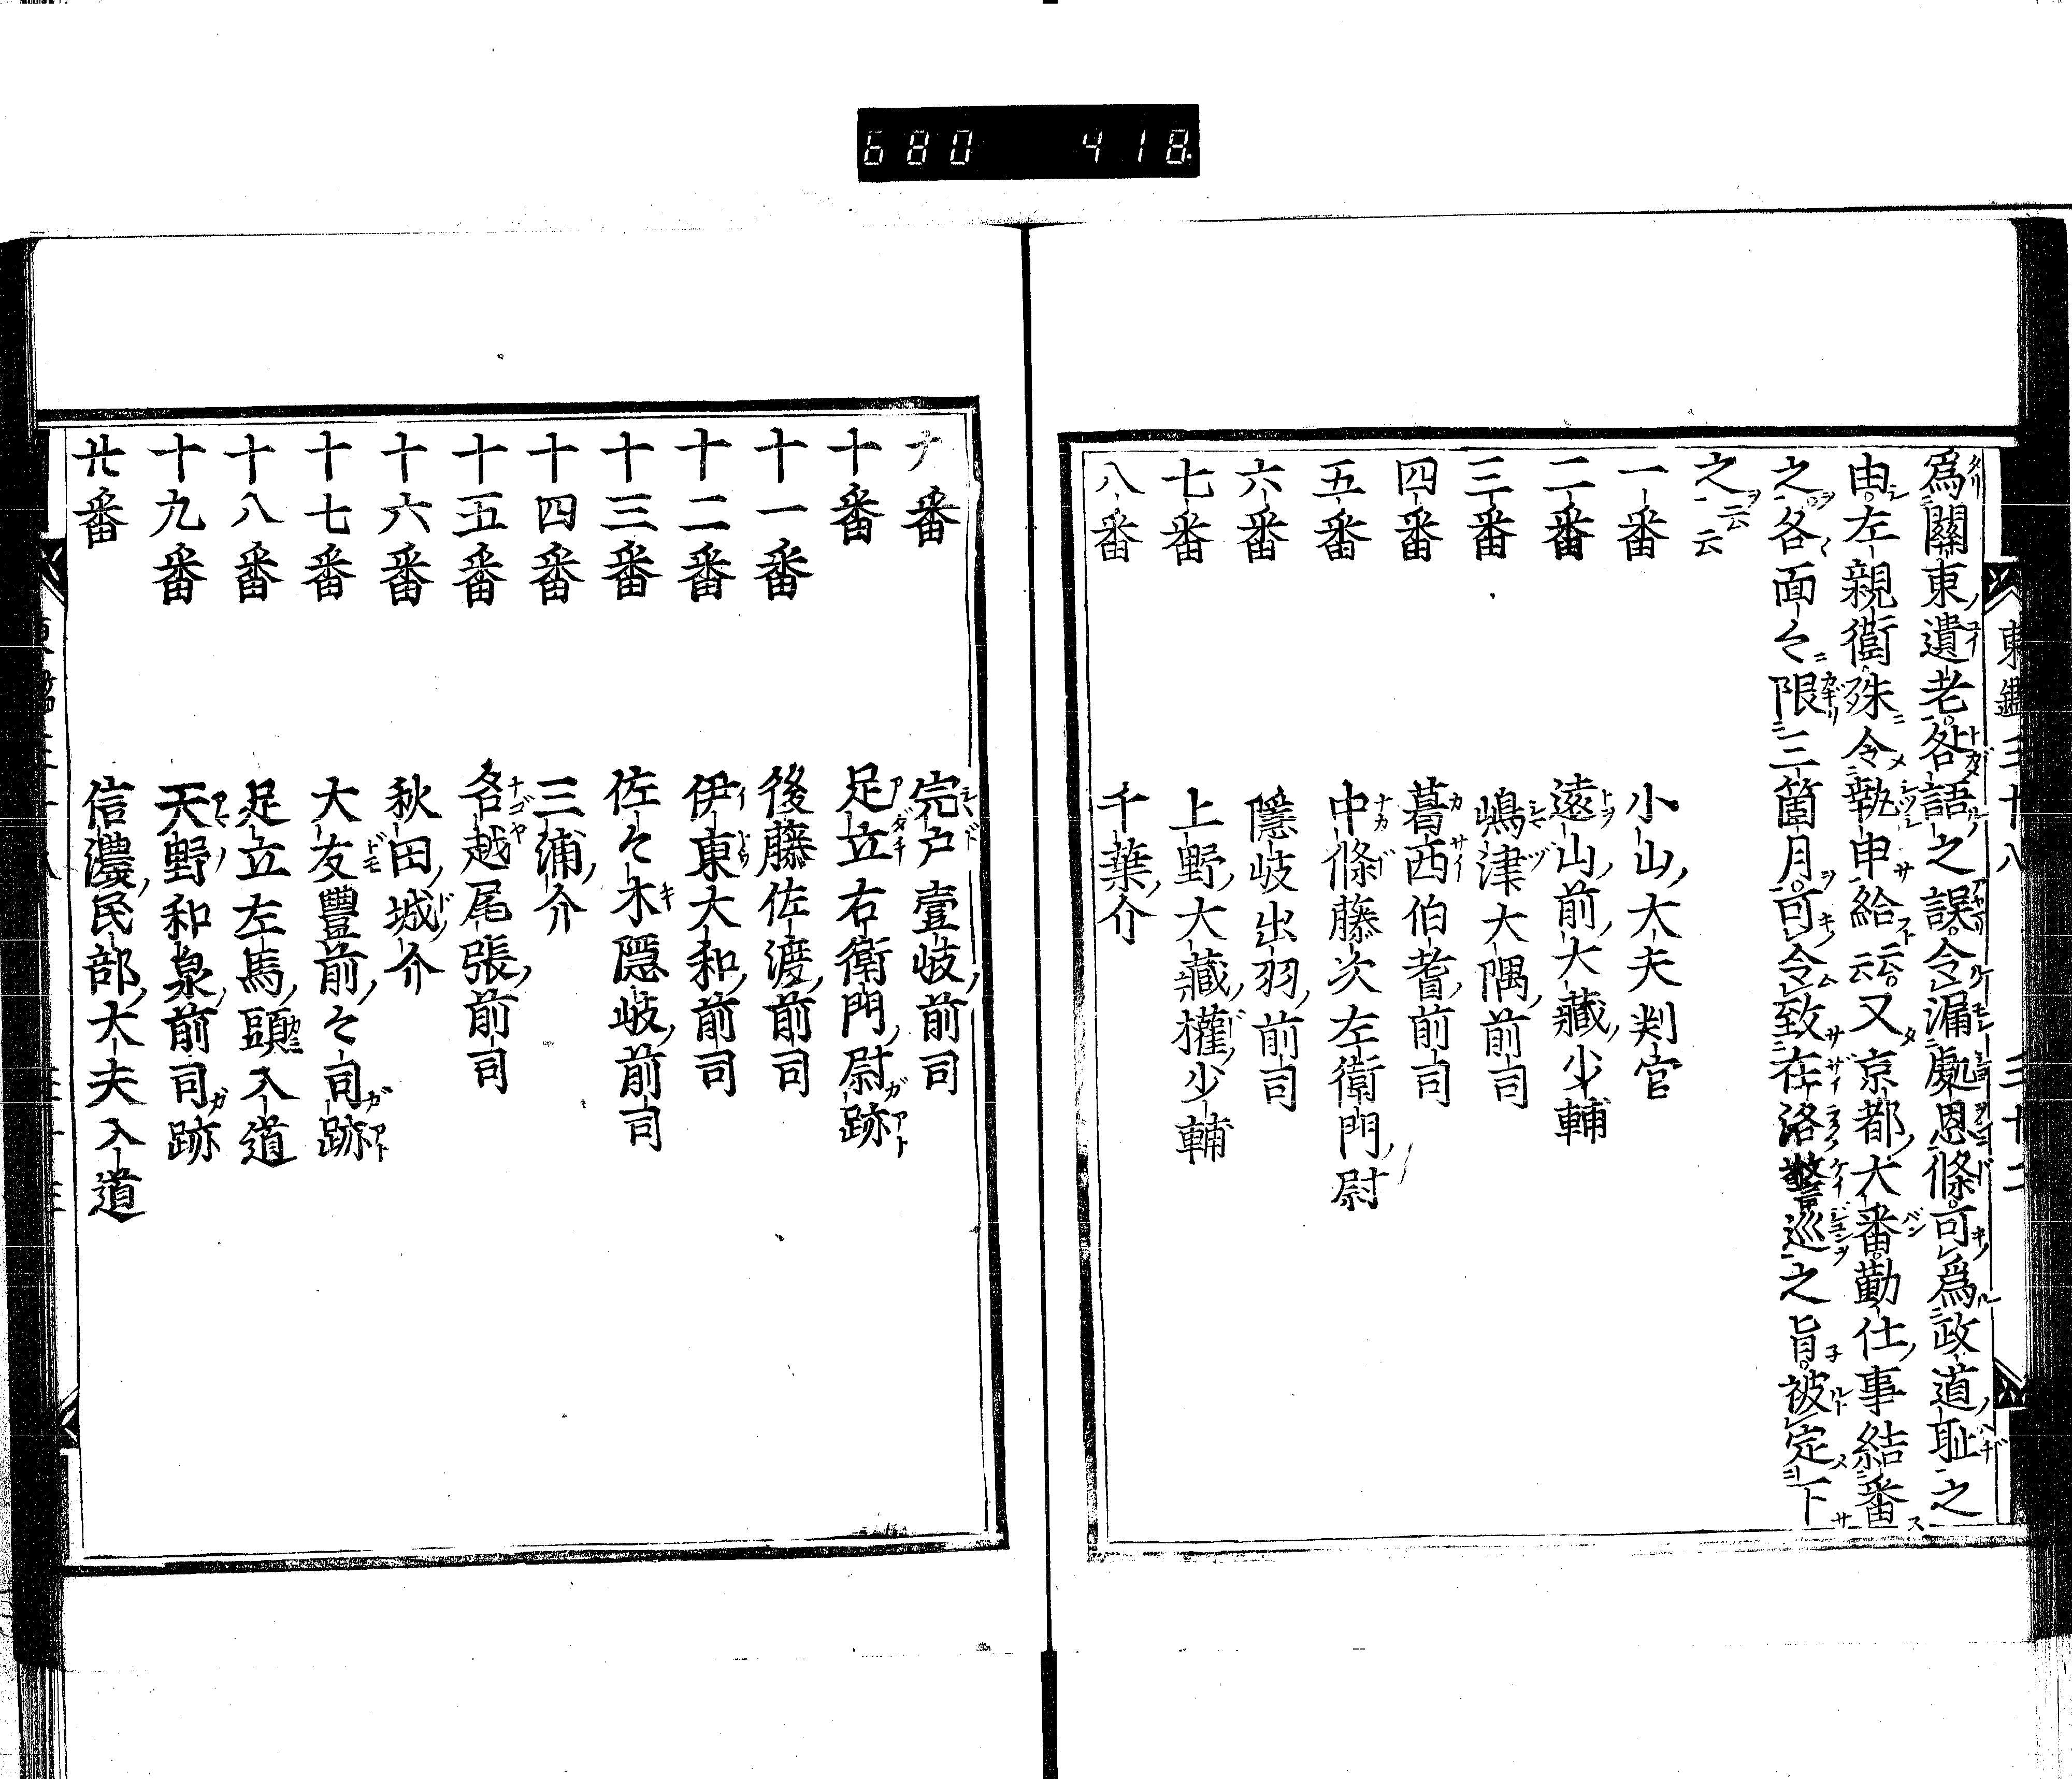 680 418
東鑑三十八 三十二
爲關東遺老各語之誤令漏處恩條可爲政道耻之
由左親衞殊令執申給云云又京都大番勤仕事結番
之各面々限三箇月可令致在洛警巡之旨被定下
之云云
一番 小山大夫判官
二番 遠山前大藏少輔
三番 嶋津大隅前司
四番 葛西伯耆前司
五番 中條藤次左衞門尉
六番 隱岐出羽前司
七番 上野大藏權少輔
八番 千葉介
九番 完戸壹岐前司
十番 足立右衞門尉跡
十一番 後藤佐渡前司
十二番 伊東大和前司
十三番 佐々木隱岐前司
十四番 三浦介
十五番 名越尾張前司
十六番 秋田城介
十七番 大友豐前々司跡
十八番 足立左馬頭入道
十九番 天野和泉前司跡
廿番 信濃民部大夫入道